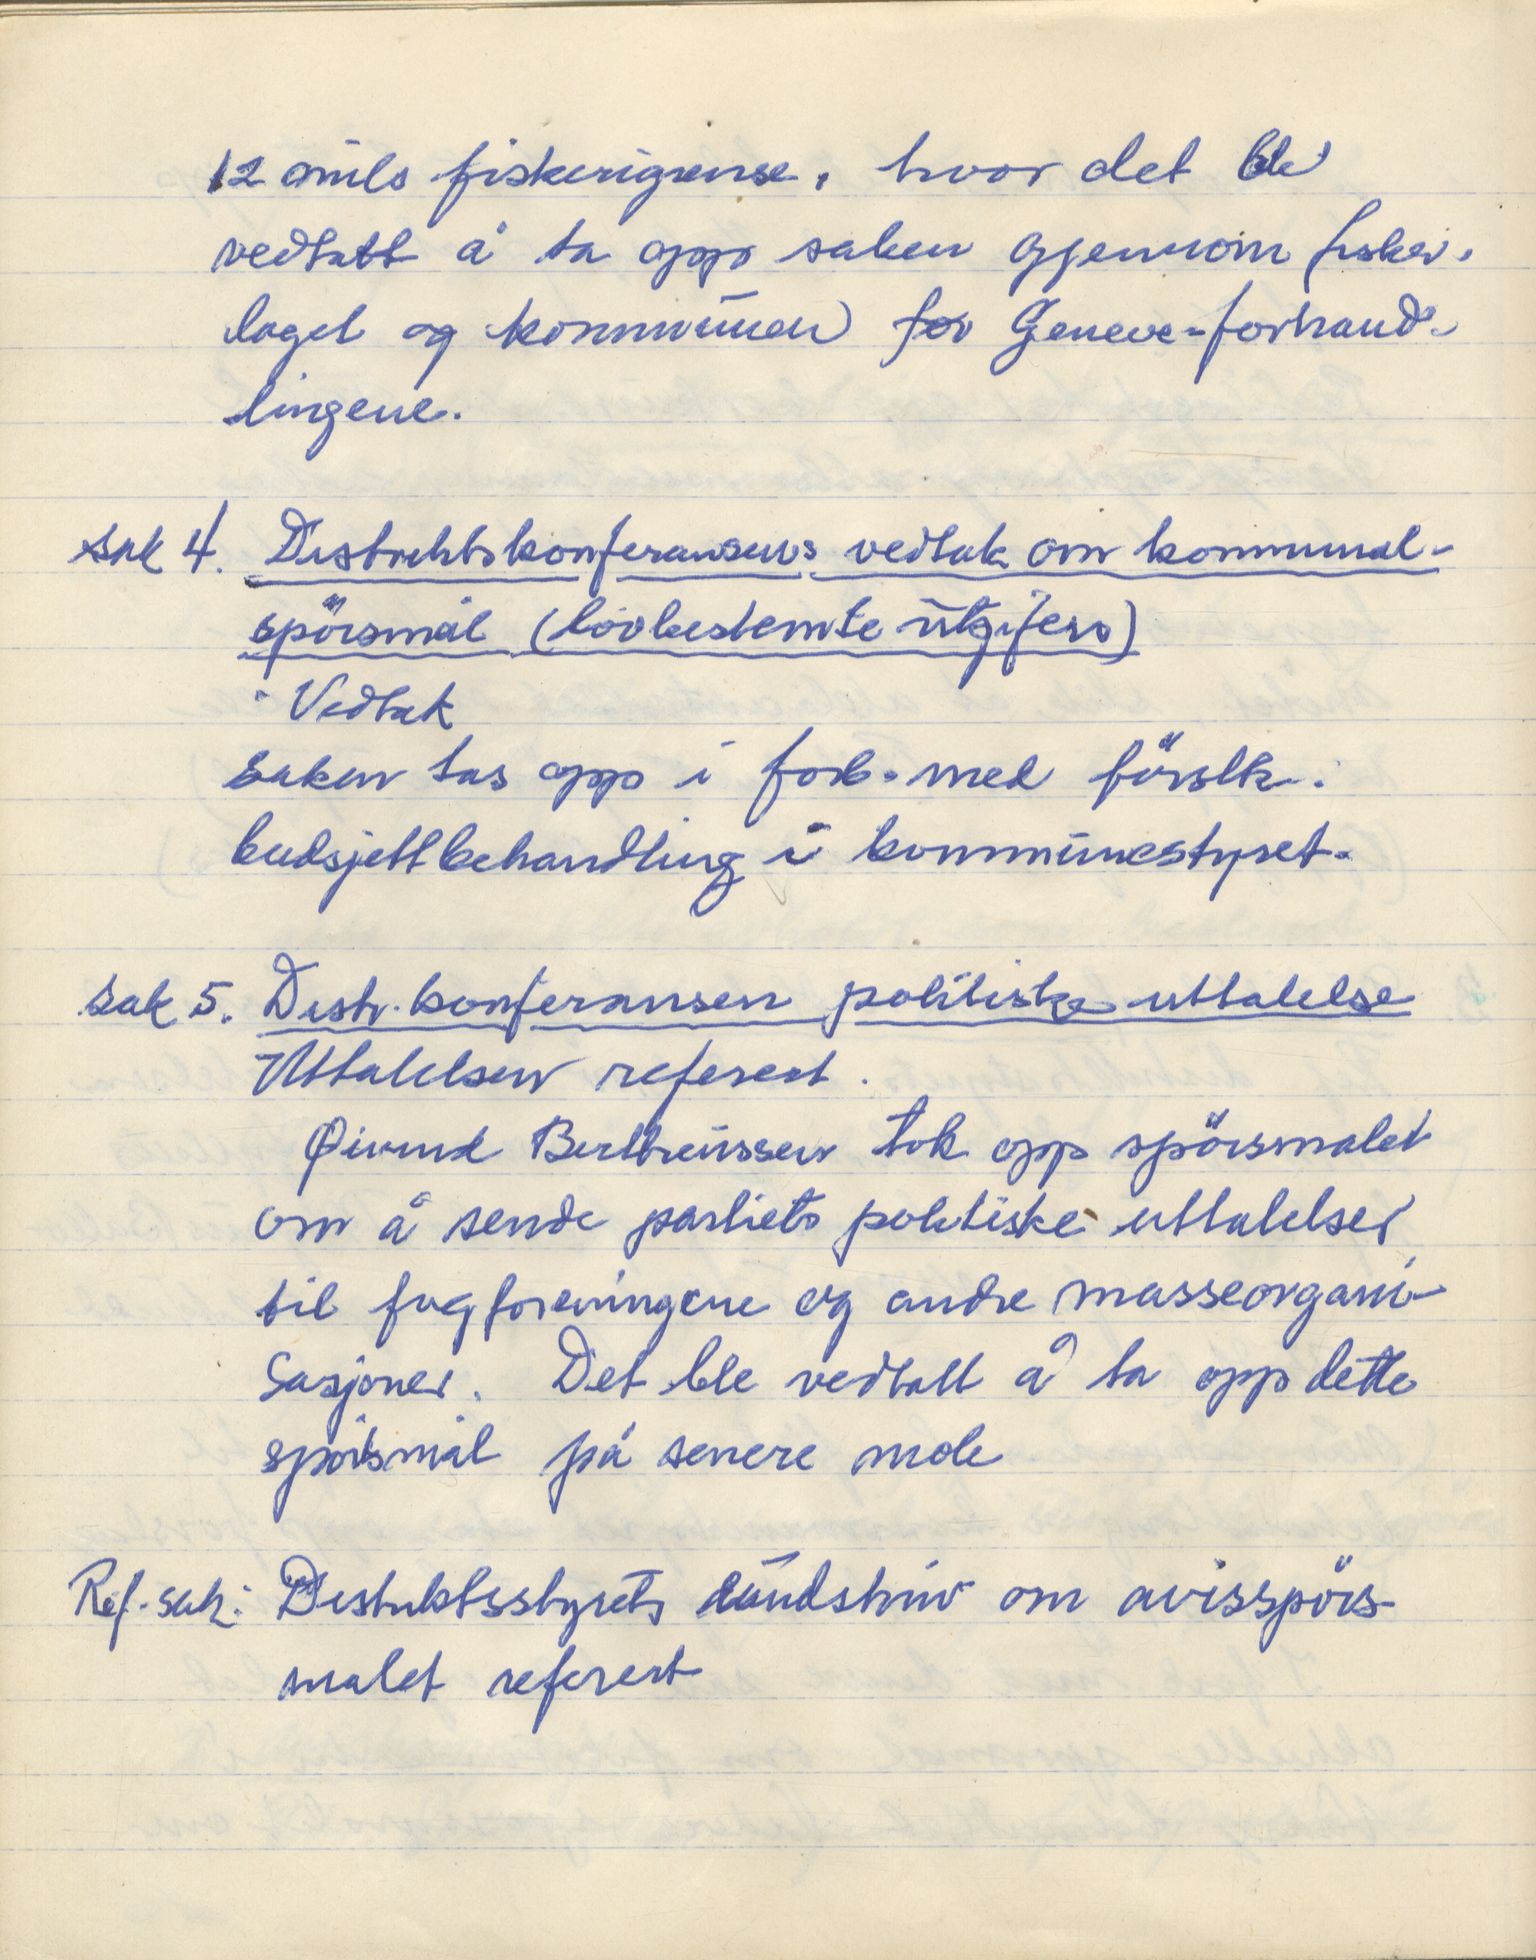 12 mils fiskerigrense, hvor det ble
vedtatt å ta opp saken gjennom fisker-
laget og kommunen før Geneve-forhand-
lingene.
Sak 4. Distriktskonferansens vedtak om kommunal-
spörsmål (lovbestemte utgifter)
Vedtak
Saken tas opp i forb. med förstk.
budsjettbehandling i kommunestyret.
Sak 5. Distr. konferansen politiske uttalelse
Uttalelsen referert.
Øivind Bertheussen tok opp spörsmalet
om å sende partiets politiske uttalelser
til fagforeningene og andre masseorgani-
sasjoner. Det ble vedtatt å ta opp dette
spörsmål på senere möte
Ref. sak: Distriktsstyrets rundskriv om avisspörs-
malet referert